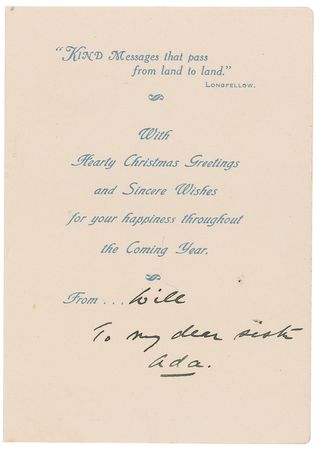 "KIND Messages that pass
from land to land."
LONGFELLOW.
With
Hearty Christmas Greetings
and Sincere Wishes
for your happiness throughout
the Coming Year.
From ... Will
To my dear sister
Ada.